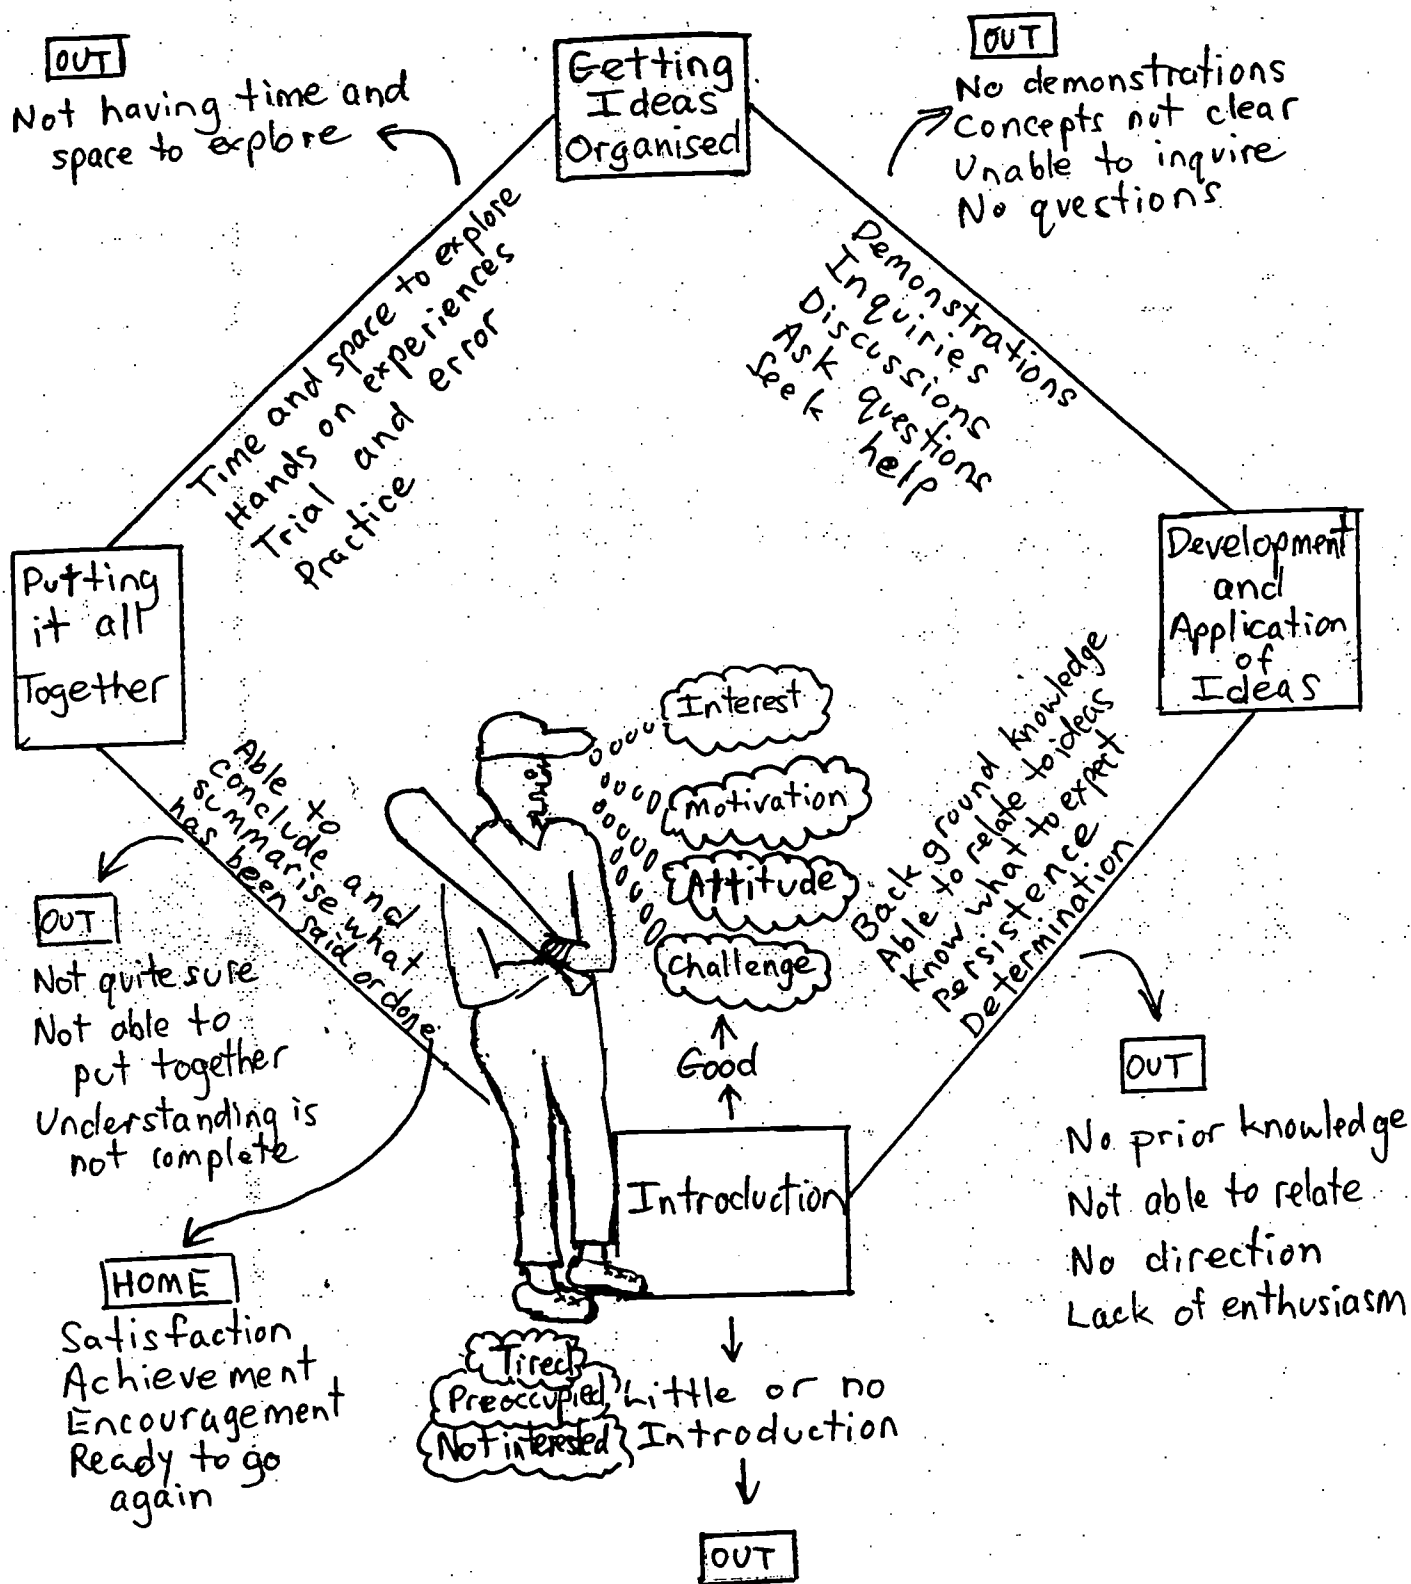 OUT
Not having time and
space to explore
Getting
Ideas
Organised
OUT
No demonstrations
Concepts not clear
Unable to inquire
No questions
Time and space to explore
Hands on experiences
Trial and error
Practice
Demonstrations
Inquiries
Discussions
Ask questions
Seek help
Putting
it all
Together
Development
and
Application
of
Ideas
Interest
Motivation
Attitude
Challenge
Good
Back ground knowledge
Able to relate to ideas
Know what to expert
Persistence
Determination
Able to
conclude and
summarise what
has been said or done
OUT
Not quite sure
Not able to
put together
Understanding is
not complete
OUT
No prior knowledge
Not able to relate
No direction
Lack of enthusiasm
Introduction
HOME
Satisfaction
Achievement
Encouragement
Ready to go
again
Tired
Preoccupied
Not interested
Little or no
Introduction
OUT